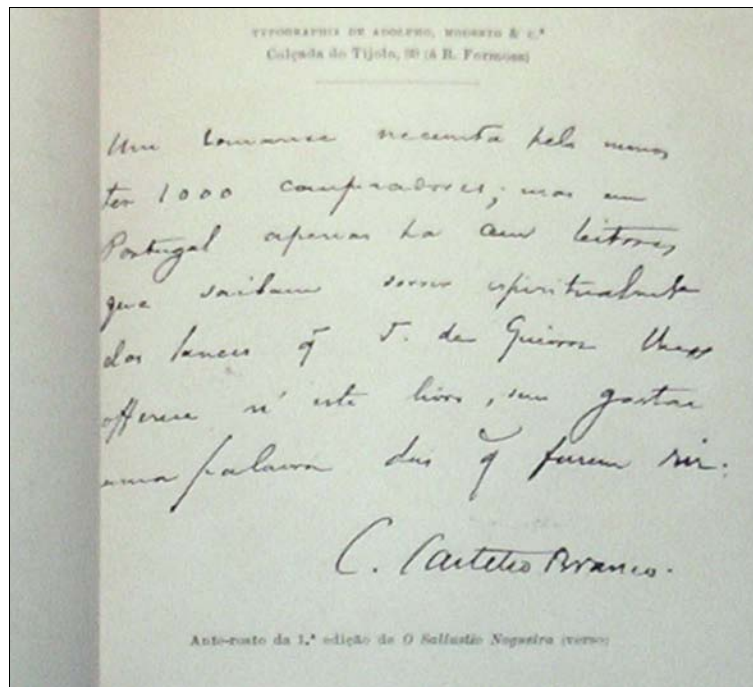 TYPOGRAPHIA DE ADOLPHO, MODESTO & C.ª
Calçada do Tijolo, 39 (á R. Formosa)
Um romance necessita pelo menos
ter 1000 compradores; mas em
Portugal apenas ha cem leitores
que saibam sorrir espiritualmente
dos lances q̃ T. de Queiroz lhes
offerece n'este livro, sem gastar
uma palavra das q̃ fazem rir.
C. Castello Branco.
Ante-rosto da 1.ª edição de O Sallustio Nogueira (verso)